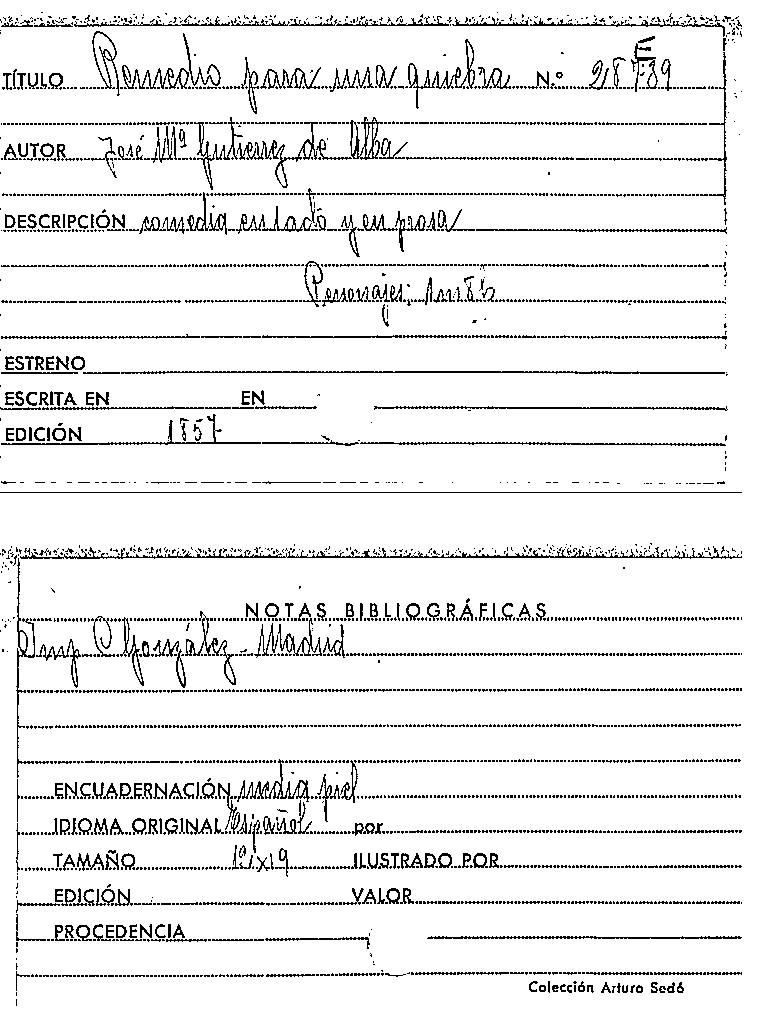 TÍTULO Remedio para una quiebra N.º E
AUTOR José Mª Gutierrez de Alba
DESCRIPCIÓN comedia en 1 acto y en prosa
Personajes:
ESTRENO
ESCRITA EN EN
EDICIÓN 1857
NOTAS BIBLIOGRÁFICAS
Imp C González - Madrid
ENCUADERNACIÓN media piel
IDIOMA ORIGINAL Español por
TAMAÑO ILUSTRADO POR
EDICIÓN VALOR
PROCEDENCIA
Colección Arturo Sedó